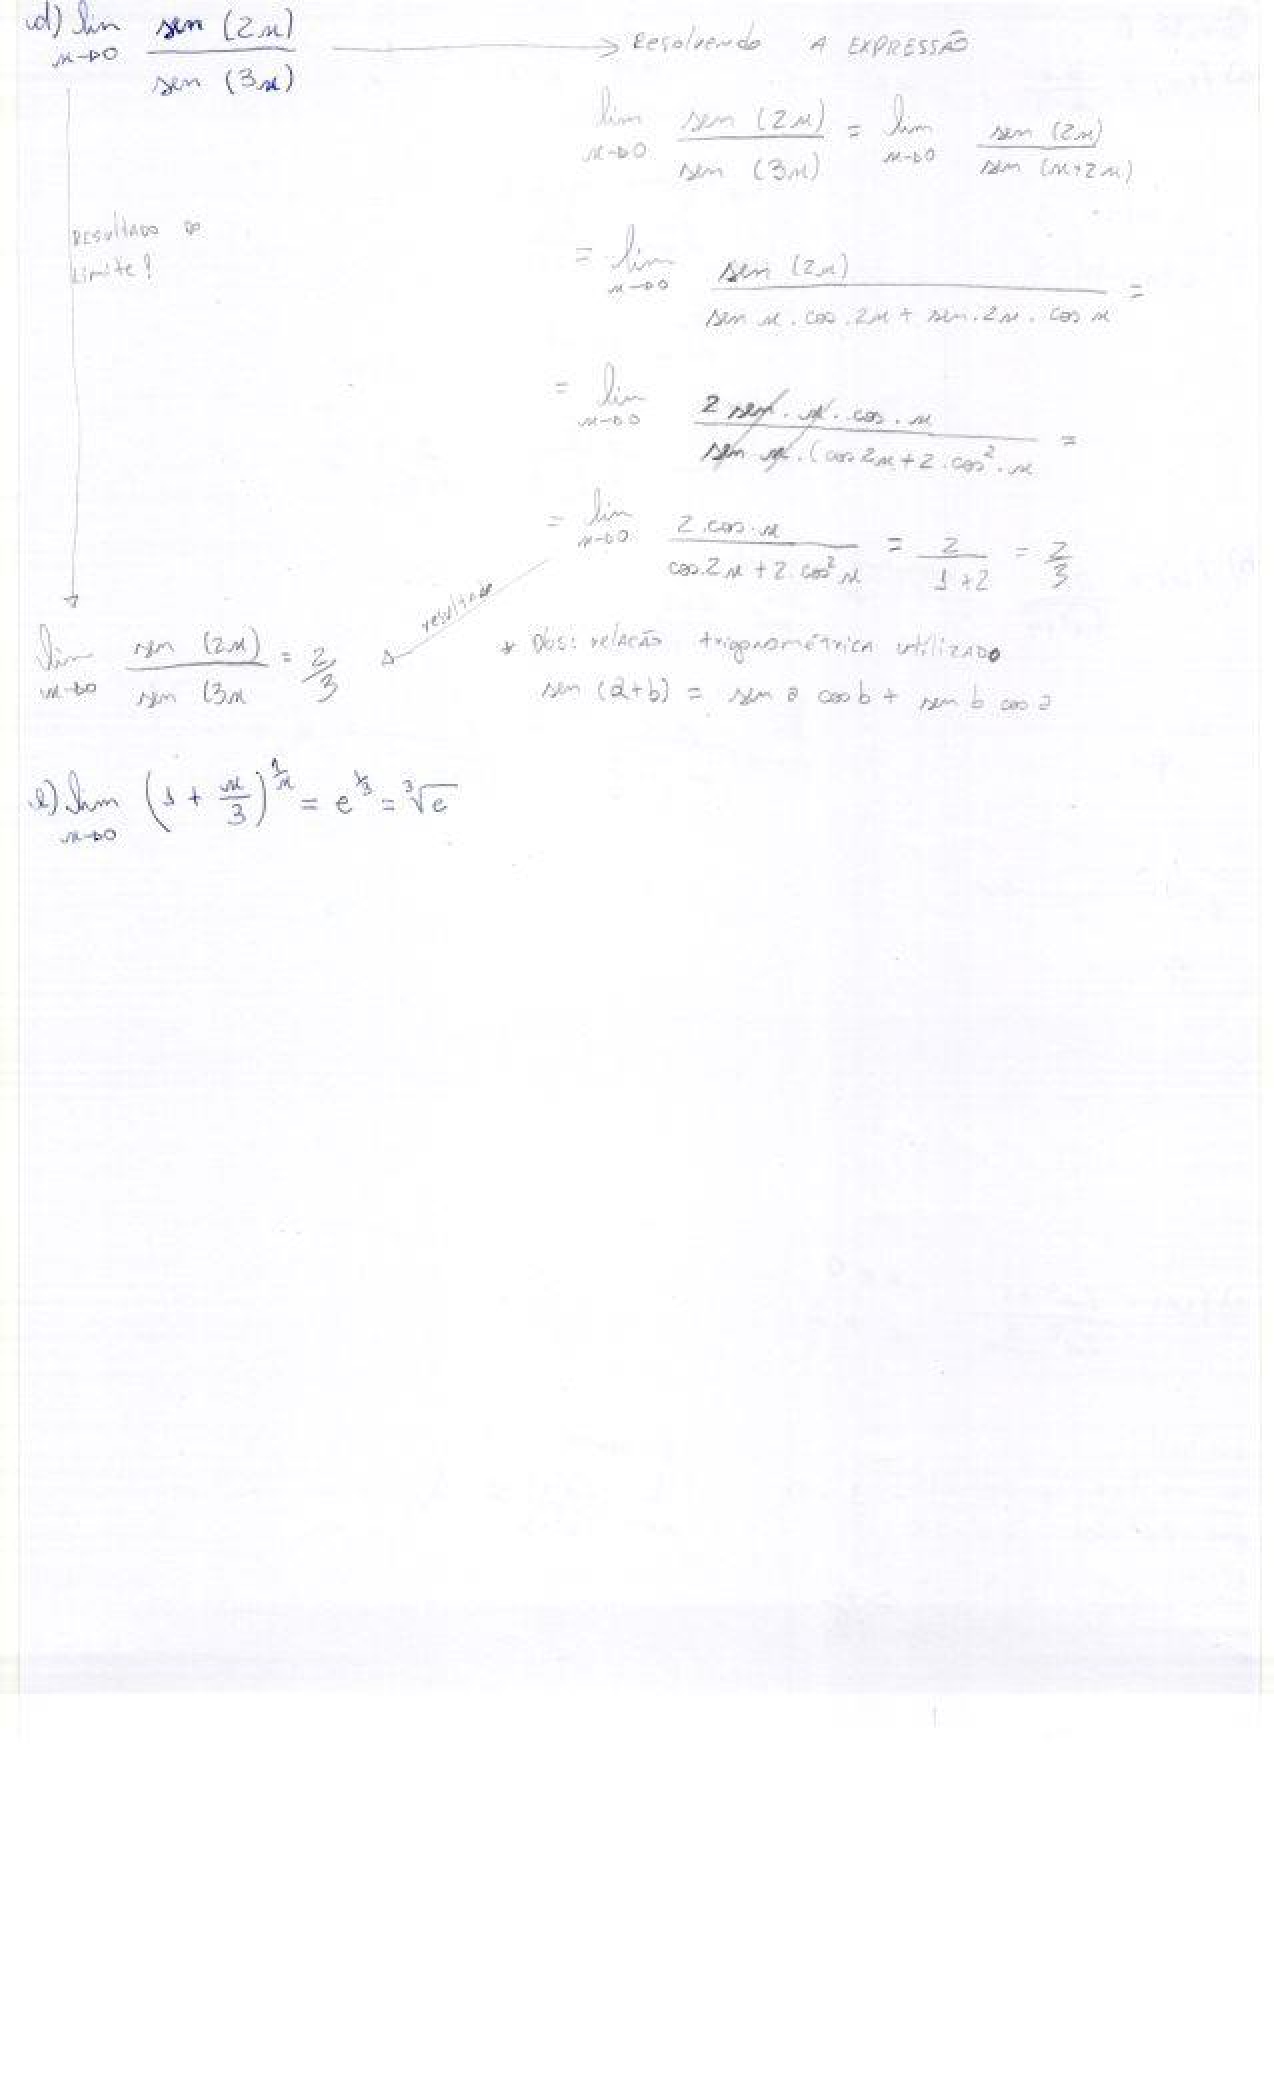 d) lim x→0 sen (2x) / sen (3x) → Resolvendo A EXPRESSÃO
lim x→0 sen (2x) / sen (3x) = lim x→0 sen (2x) / sen (x+2x)
RESULTADO DO
Limite!
= lim x→0 sen (2x) / sen x . cos . 2x + sen . 2x . cos x =
= lim x→0 2 sen . x . cos . x / sen x . (cos 2x + 2 . cos² . x =
= lim x→0 2 . cos . x / cos 2x + 2 . cos² x = 2 / 1+2 = 2/3
resultado
lim x→0 sen (2x) / sen (3x = 2/3
* Obs: relação trigonométrica utilizado
sen (a+b) = sen a cos b + sen b cos a
e) lim x→0 (1 + x/3)^1/x = e^1/3 = ³√e